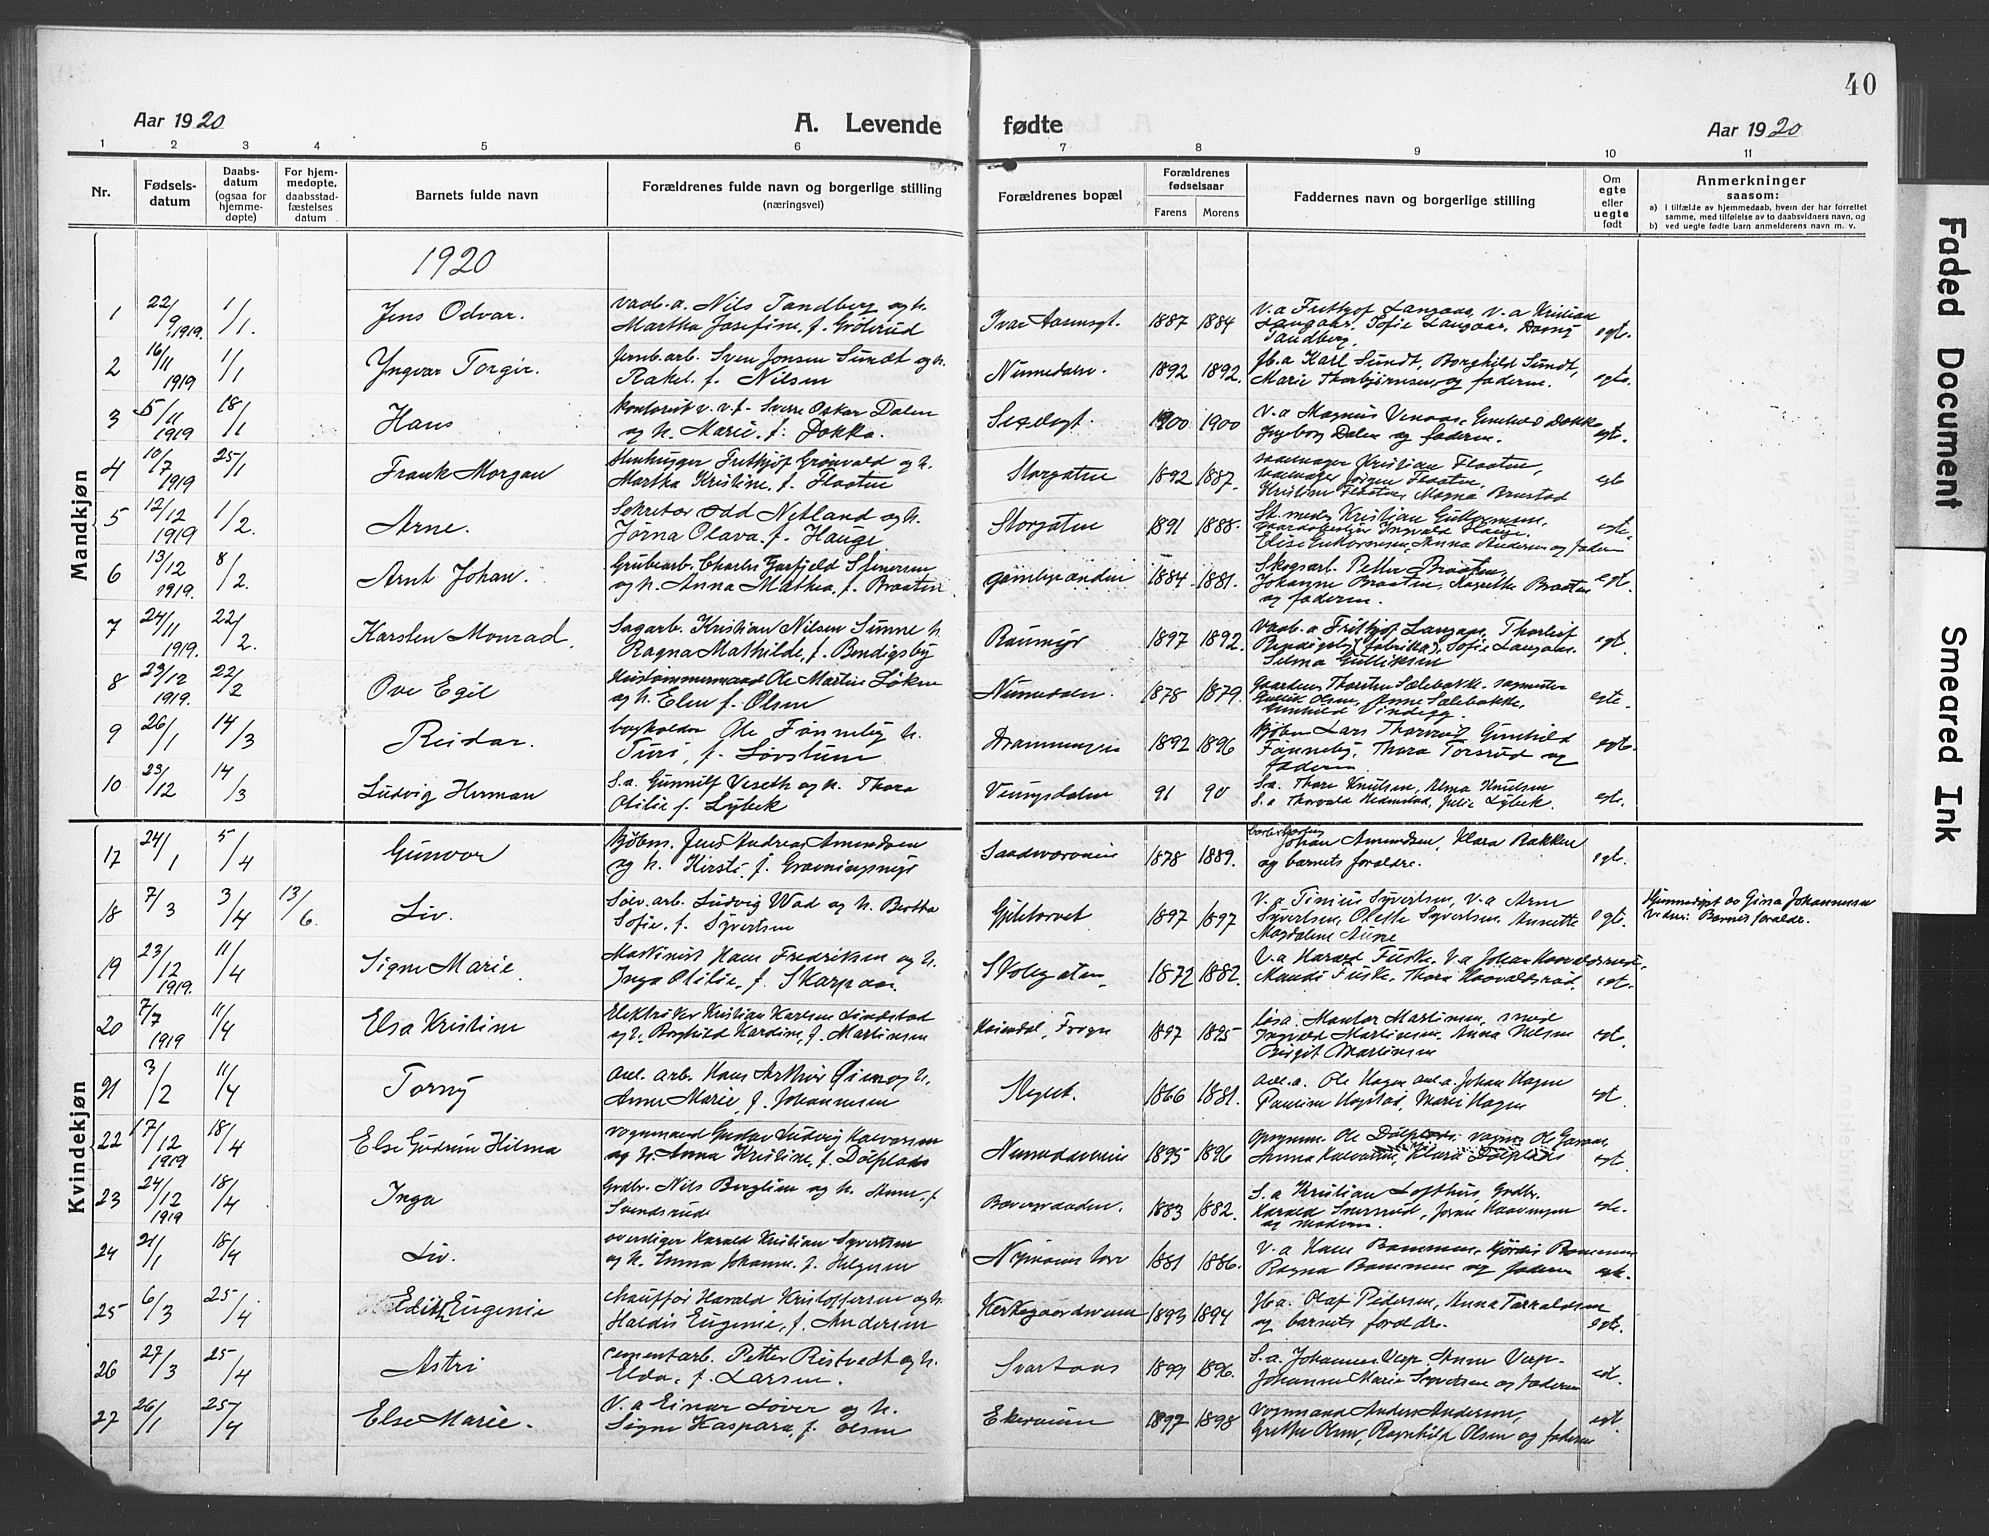 40
Aar 1920
A. Levende fødte
Aar 1920
1 2 3 4 5 6 7 8 9 10 11
Nr.
Fødsels-
datum
Daabs-
datum
(ogsaa for
hjemme-
døpte)
For hjem-
medøpte,
daabsstad-
fæstelses
datum
Barnets fulde navn
Forældrenes fulde navn og borgerlige stilling
(næringsvei)
Forældrenes bopæl
Forældrenes
fødselsaar
Farens Morens
Faddernes navn og borgerlige stilling
Om
egte
eller
uegte
født
Anmerkninger
saasom:
a) i tilfælde av hjemmedaab, hvem der har forrettet
samme, med tilføielse av to daabsvidners navn, og
b) ved uegte fødte barn anmelderens navn m. v.
Mandkjøn
1920
1 22/9 1919. 1/1. Jens Odvar. Nils Tandberg og h.
Martha Josefine, f. Grølsrud
Ivar Aasensgt. 1887 1884 V.a Frithjof Langaas, V.a Kristian
Langaas, Sofie Langaas, Dagny
Tandberg. egte.
2 16/11 1919 1/1 Yngvar Torgir. Jernb.arb. Sven Jonsen Sundt og h.
Rakel f. Nilsen
Numedalsv. 1892 1892. Jb.a Karl Sundt, Borghild Sundt,
Marie Thorbjørnsen og faderen. egte.
3 5/11 1919 18/1 Hans Kontorist Sverre Oskar Dalen
og h. Marie, f. Dokka.
1900 1900 V.a Magnus Dokka
Ingeborg Dalen og faderen. egt.
4 10/7 1919 25/1 Frank Morgan Stenhugger Frithjof Grønvald og h.
Martha Kristine, f. Flaaten
Storgaten 1892 1887. Kristian Flaaten,
Jørgen Flaaten,
Kristine Flaaten, Magna egte
5 12/12 1919 1/2. Arne. Sekretær Odd Netland og h.
Jørna Olava f. Hauge
Storgaten 1891 1888. Kristian Guttormsen,
Ingvald Hauge,
Elise Guttormsen, Anna Andersen og faderen egte.
6 13/12 1919. 8/2. Arnt Johan. Grubearb. Charles Garfield Stenersen
og h. Anna Mathea, f. Braaten.
1884. 1881. Skogsarb. Petter Braaten,
Johanne Braaten, Ragnille Braaten
og faderen. egt.
7 24/11 1919. 22/2. Karsten Monrad. Sagarb. Kristian Nilsen Sunne h.
Ragna Mathilde, f. Bendigsby
Raumyr 1897 1892. Frithjof Langaas, Thorleif
Bendigsby (fabrikka), Sofie Langaas.
Selma Gulliksen egt.
8 23/12 1919. 22/2 Ove Egil Hustømmermand Ole Martin Løken
og h. Elen f. Olsen
Numedalsv. 1878 1879. Thorsten Sælebakke,
Olsen, Anne Sælebakke,
Gunhild Vindegg. egte.
9 26/1 14/3 Reidar. bogholder Ole Fønneby h.
Turi, f. Løvstuen
Drammensveien 1892 1896 Lars Gunhild
Fønneby, Thora Torsrud og
faderen egte.
10 23/12 14/3 Ludvig Herman S.a. Gunnulf Veseth og h. Thora
Otilie f. Lybek
Vungsdalen 91 90 S.a. Thore Knutsen, Alma Knutsen
S.a Thorvald Julie Lybek. egte.
Kvindekjøn
17 24/1 5/4 Gunvor Jens Andreas Amundsen
og h. Kirsti f. Gravningsmyr
Sandsværveien 1878 1889. Johan Amundsen, Klara Bakken
og barnets foraldre. egte.
18 7/3 3/4 13/6. Liv. Sølv.arb. Ludvig Wad og h. Bertha
Sofie, f. Syvertsen
Gyldetorvet 1897 1897 V.a Tinius Syvertsen, V.a Arne
Syvertsen, Olette Syvertsen, Annette
Magdalene Aune egt. Hjemmedøpt av Gina Johannesen
Vidner: Barnets foraldre.
19 23/12 1919. 11/4 Signe Marie. Maskinist Hans Fredriksen og h.
Inga Otilie, f. Skarpaas.
Skolegaten. 1872 1882. V.a Harald Fuske, V.a Johan
Maudi Fuske, Thora egt.
20 7/7 1919 11/4 Elsa Kristine Elektriker Kristian Karlsen Lindstad
og h. Borghild Hardine, f. Martinsen
Frogn 1897 1895 Martinsen, smed
Ingvald Martinsen, Anna Nilsen
Birgit Martinsen egt.
21 3/2 11/4 Torny Anl. arb. Hans Arthur Øien og h.
Anne Marie, f. Johannesen
1866 1881. Anl.a. Ole Hagen anl.a. Johan Hagen
Pauline Hagstad, Marie Hagen egt.
22 17/12 1919 18/4 Else Gudrun Hilma Vognmand Gustav Ludvig Halvorsen
og h. Anna Kristine, f. Dølplads
Numedalsveien 1895 1896 Ole Dølplads, Ole
Anna Halvorsen, Klara Dølplads egt.
23 24/12 1919 18/4 Inga Grdbr. Nils Berglien og h. Anne, f.
Svendsrud
1883 1882. S.a Kristian Lofthus, Grdbr.
Harald
og moderen. egte.
24 21/1 18/4 Liv. Harald Kristian Syvertsen
og h. Emma Johanne, f. Helgesen
Nymoens torv 1881 1886. V.a Hans Bammen, Hjørdis Bammen
Ragna Bammen og faderen egt.
25 6/3 25/4 Edith Eugenie Chauffør Harald Kristoffersen og h.
Haldis Eugenie, f. Andersen
Kirkegaardsveien 1893 1894 Jb.a. Olaf Pedersen, Anna Tarraldsen
og barnets foraldre. egte.
26 27/3 25/4 Astri Cementarb. Petter Ristvedt og h.
Elda, f. Larsen.
Svartaas 1899 1896. S.a. Johannes Verp Anne Verp.
Johanne Marie Syvertsen og faderen egt.
27 26/1 25/4 Else Marie. V.a Einar Løver og h.
Signe Kaspara, f. Olsen
Ekerveien 1897 1898 Vognmand Anders Andersen,
Grethe Olsen, Ragnhild Olsen og faderen egt.
Faded Document
Smeared Ink